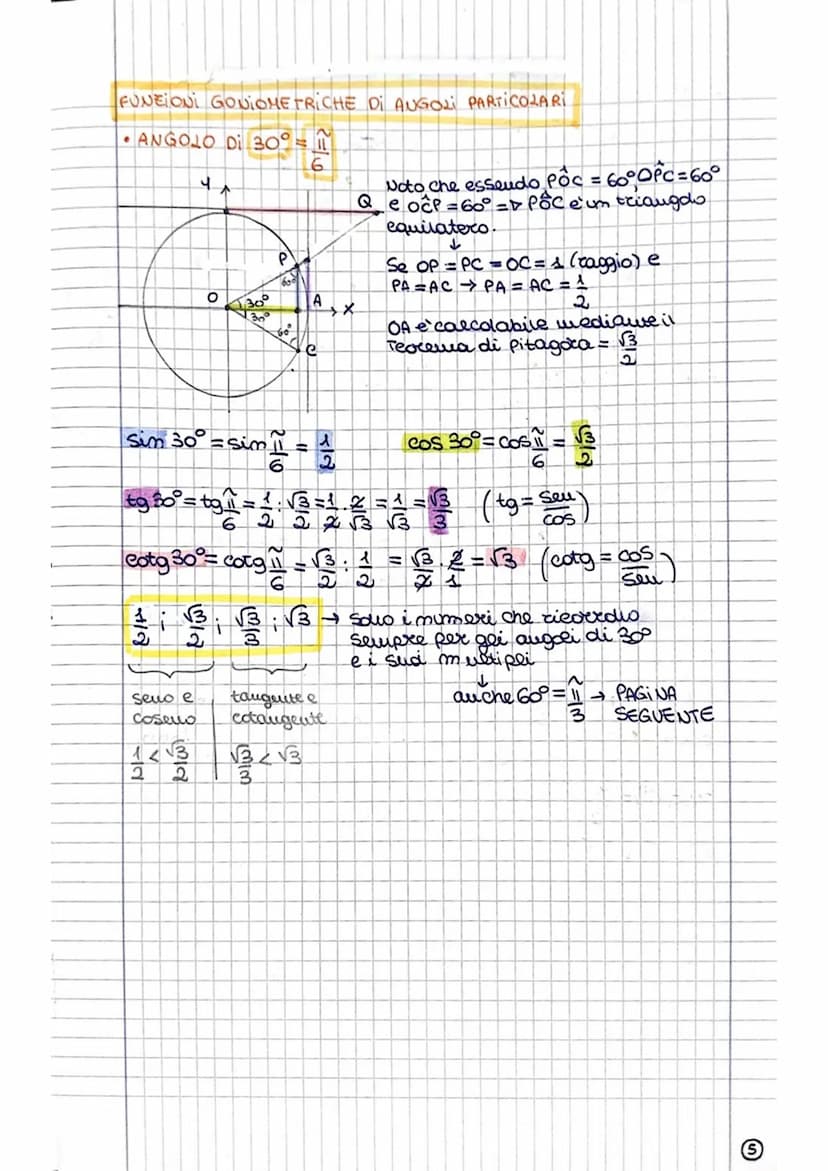 FUNZIONI GONIOMETRICHE DI ANGOLI PARTICOLARI
• ANGOLO DI 30° = π/6
Y
Q
P
60°
O
30°
30°
A
X
60°
C
Noto che essendo PÔC = 60°, OP̂C = 60°
e OĈP = 60° => PÔC è un triangolo
equilatero.
↓
Se OP = PC = OC = 1 (raggio) e
PA = AC → PA = AC = 1/2
OA è calcolabile mediante il
Teorema di Pitagora = √3/2
sin 30° = sin π/6 = 1/2 cos 30° = cos π/6 = √3/2
tg 30° = tg π/6 = 1/2 : √3/2 = 1/2 · 2/√3 = 1/√3 = √3/3 (tg = sen/cos)
cotg 30° = cotg π/6 = √3/2 : 1/2 = √3/2 · 2/1 = √3 (cotg = cos/sen)
1/2 ; √3/2 ; √3/3 ; √3 → sono i numeri che ricorrono
sempre per gli angoli di 30°
e i suoi multipli
↓
anche 60° = π/3 → PAGINA
SEGUENTE
seno e
coseno
1/2 < √3/2
tangente e
cotangente
√3/3 < √3
5